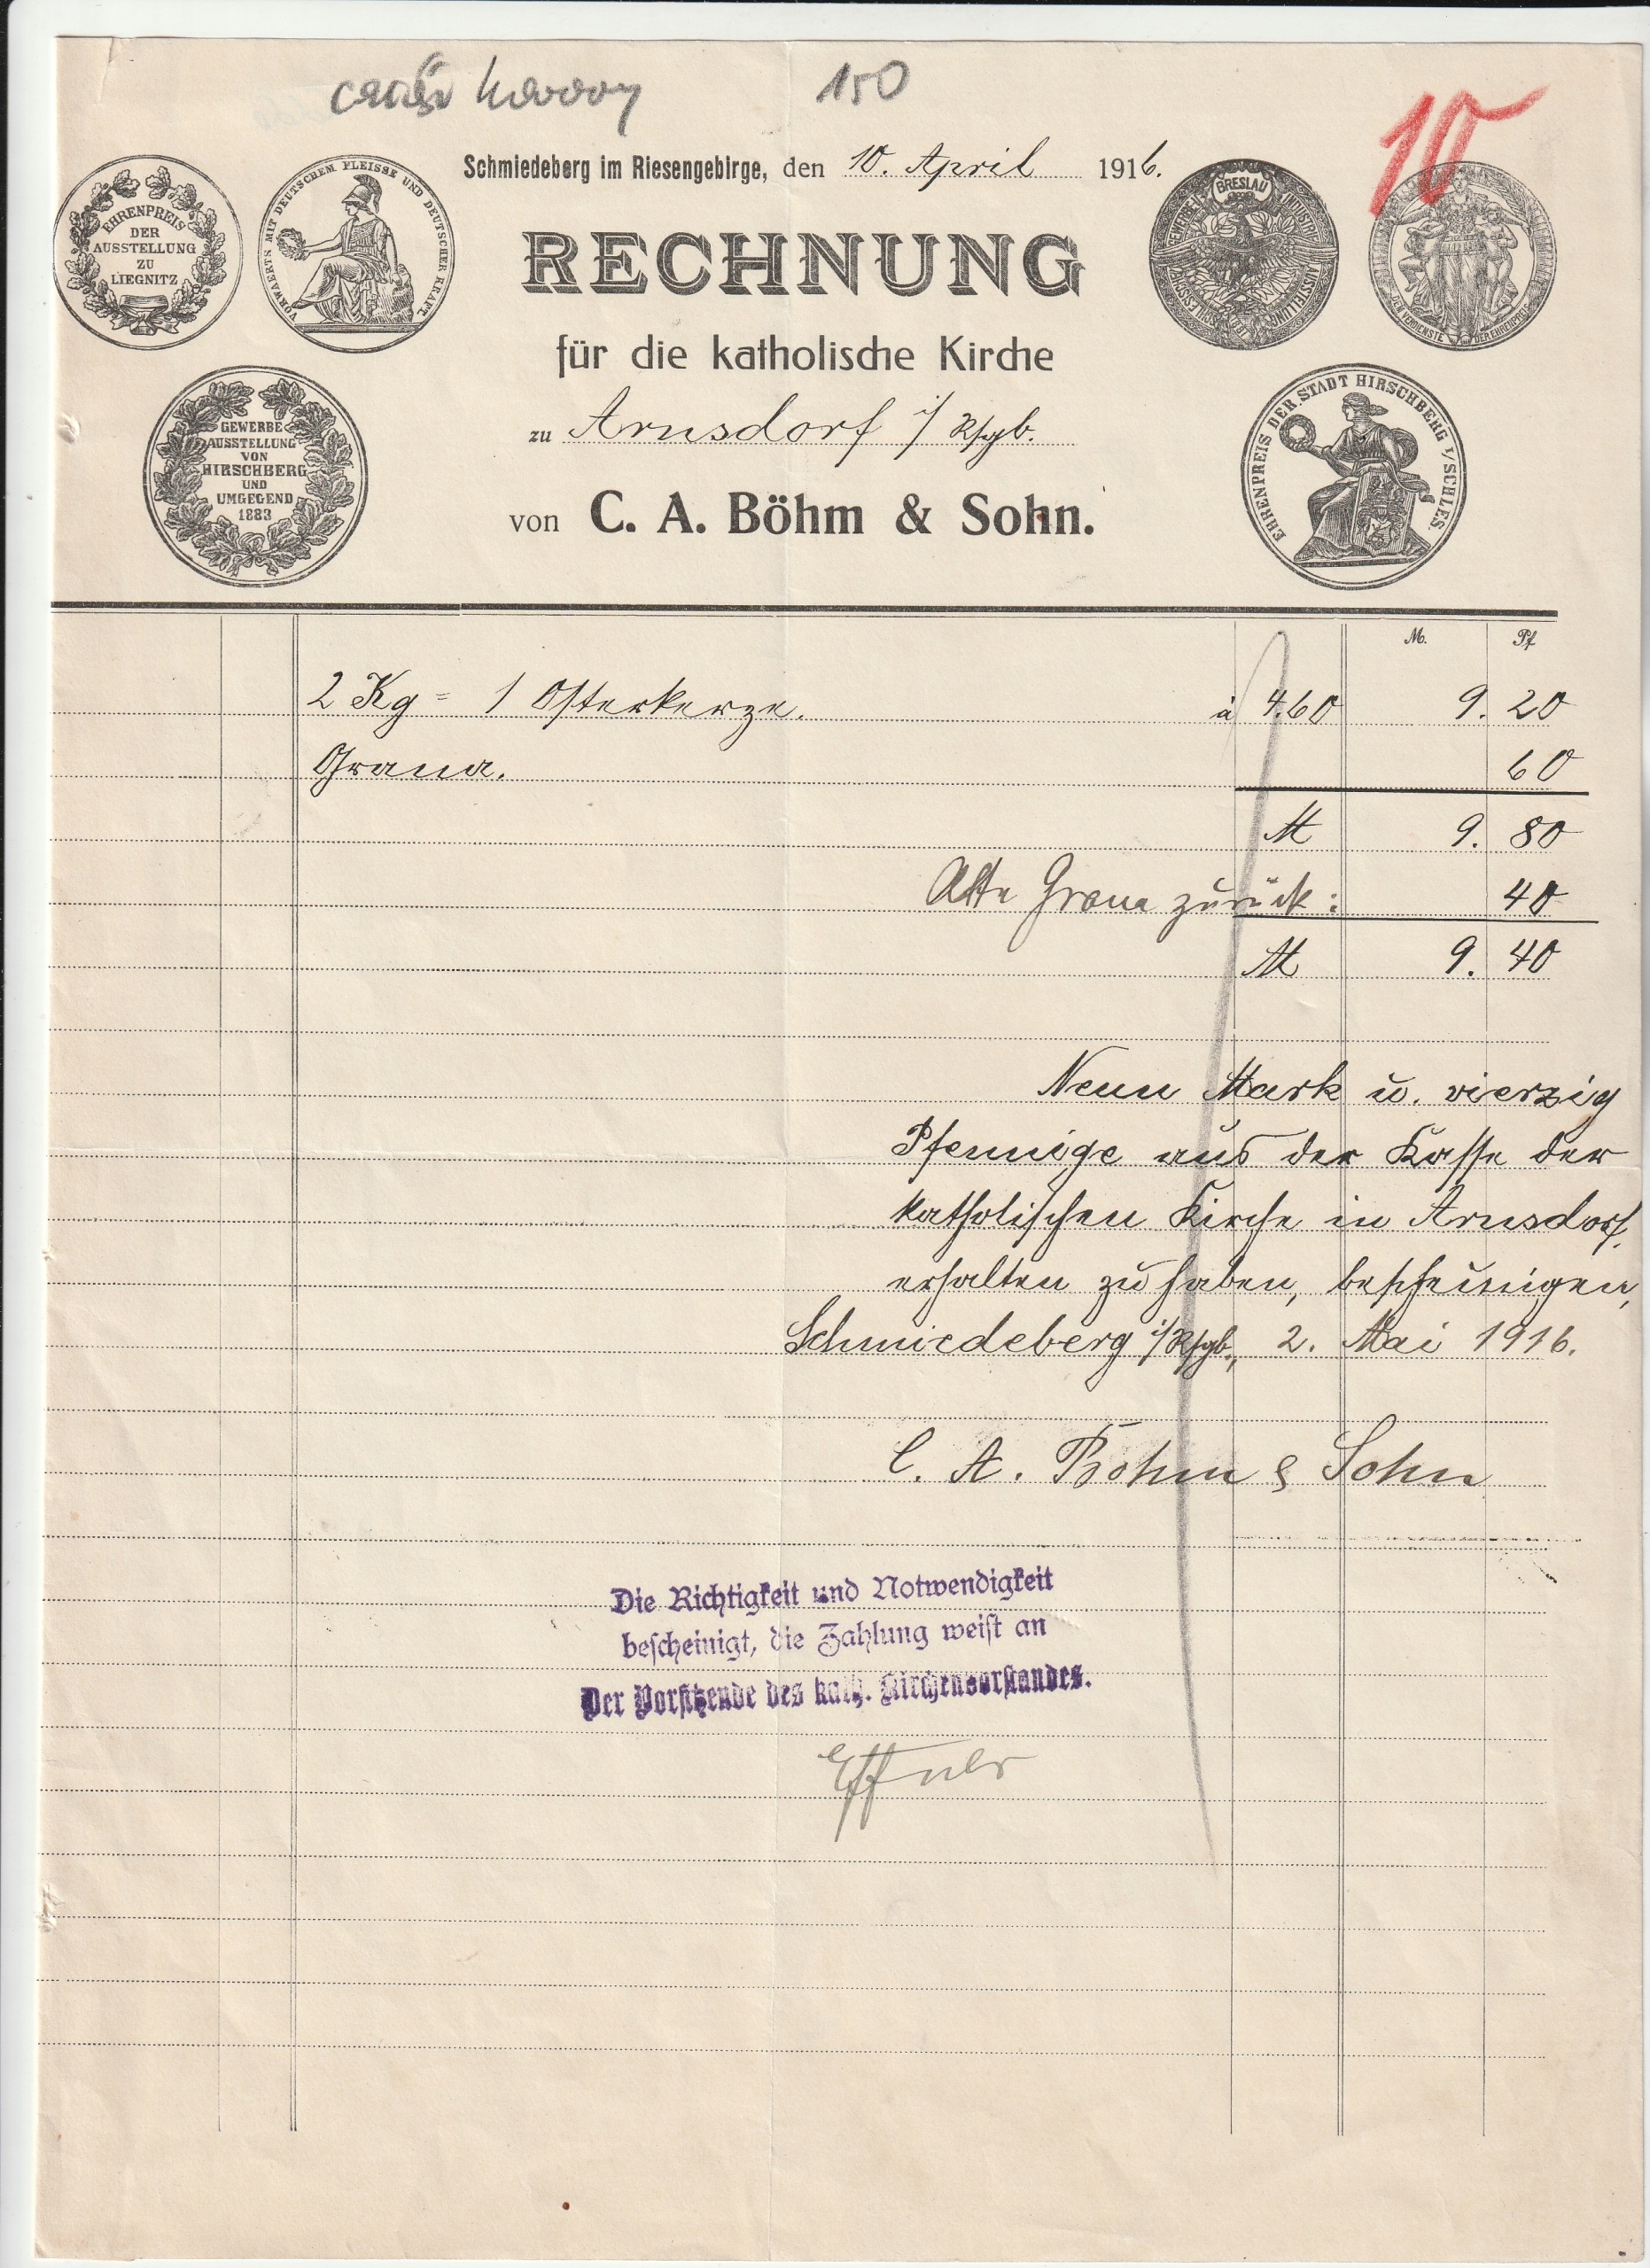 150
10
Schmiedeberg im Riesengebirge, den 10. April 1916.
EHRENPREIS
DER
AUSSTELLUNG
ZU
LIEGNITZ
VORWAERTS MIT DEUTSCHEM FLEISSE UND DEUTSCHER KRAFT
BRESLAU
RECHNUNG
für die katholische Kirche
zu Arnsdorf i/Rsgb.
von C. A. Böhm & Sohn.
GEWERBE
AUSSTELLUNG
VON
HIRSCHBERG
UND
UMGEGEND
1883
EHRENPREIS DER STADT HIRSCHBERG I/SCHLES.
M. Pf
2 Kg = 1 Osterkerze. à 4.60 9. 20
Grana. 60
M 9. 80
Alte Grana zurück: 40
M 9. 40
Neun Mark u. vierzig
Pfennige aus der Kasse der
katholischen Kirche in Arnsdorf,
erhalten zu haben, bescheinigen,
Schmiedeberg i/Rsgb., 2. Mai 1916.
C. A. Böhm & Sohn
Die Richtigkeit und Notwendigkeit
bescheinigt, die Zahlung weist an
Der Vorsitzende des kath. Kirchenvorstandes.